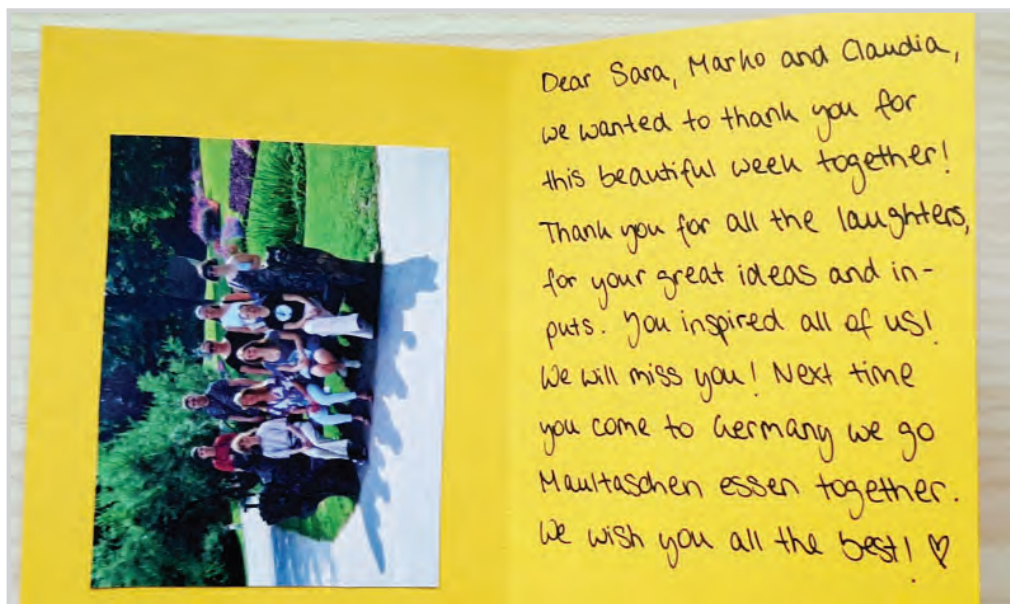 Dear Sara, Marko and Claudia,
we wanted to thank you for
this beautiful week together!
Thank you for all the laughters,
for your great ideas and in-
puts. You inspired all of us!
We will miss you! Next time
you come to Germany we go
Maultaschen essen together.
We wish you all the best! ♡